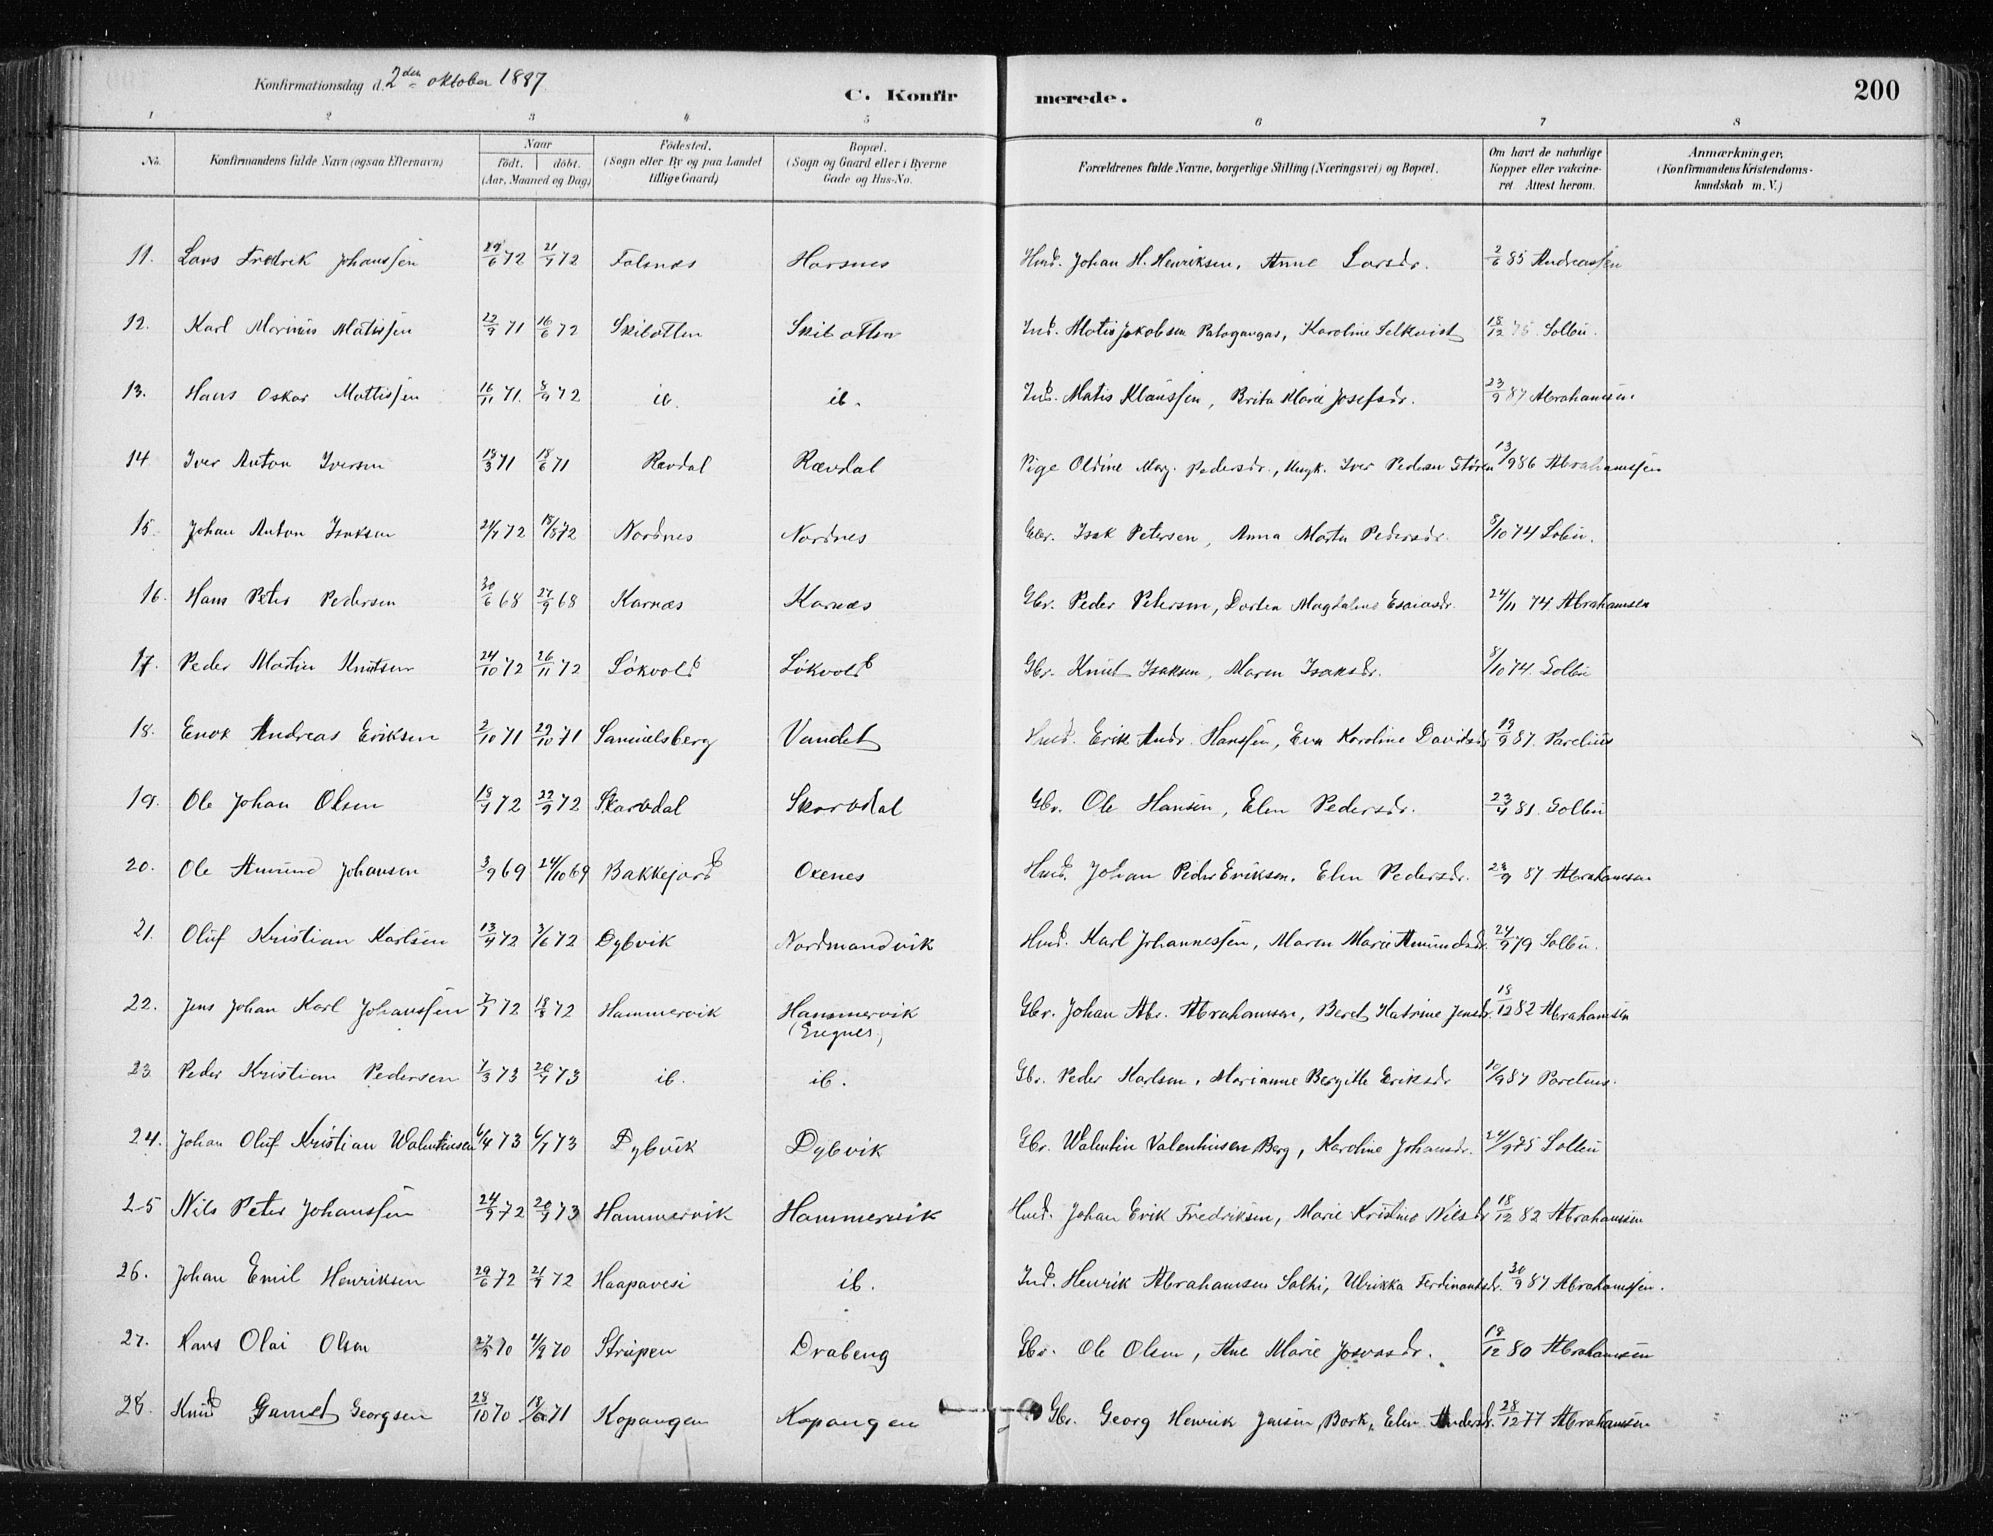 Konfirmationsdag d. 2den oktober 1887.
C. Konfirmerede.
200
1 2 3 4 5 6 7 8
No. Konfirmandens fulde Navn (ogsaa Efternavn) Naar født. døbt. (Aar, Maaned og Dag) Fødested. (Sogn eller By og paa Landet tillige Gaard) Bopæl. (Sogn og Gaard eller i Byerne Gade og Hus-No. Forældrenes fulde Navne, borgerlige Stilling (Næringsvei) og Bopæl. Om havt de naturlige Kopper eller vakcineret. Attest herom. Anmærkninger, (Konfirmandens Kristendomskundskab m. V.)
11. Lars Fredrik Johanssen 29/6 72 21/7 72 Falsnes Horsnes Hmd. Johan H. Henriksen, Anne Larsdr. 2/6 85 Andreassen
12. Karl Marinus Matissen 22/9 71 16/6 72 Skibotten Skibotten Ind. Matis Jakobsen Palogangas, Karoline Selkvist 18/12 75 Solbu.
13. Hans Oskar Mattissen 16/11 71. 3/9 72 ib. ib. Ind. Matis Klaussen, Brita Marie Josefsdr. 23/9 87 Abrahamsen
14 Iver Anton Iversen 19/3 71 18/6 71 Rævdal Rævdal Pige Oldine Marg. Pedersdr., Ungk. Iver Pedersen Støren 13/9 86 Abrahamssen
15 Johan Anton Isaksen 21/7 72 18/8 72 Nordnes Nordnes Gbr. Isak Petersen, Anna Marta Pedersdr. 8/10 74 Solbu.
16. Hans Peter Pedersen 30/6 68 27/9 68 Karnæs Karnæs Gbr. Peder Petersen, Dorten Magdalene Esaiasdr. 24/11 74 Abrahamsen
17. Peder Martin Knutsen 24/10 72 26/11 72 Løkvold Løkvold Gbr. Knut Isaksen, Maren Isaksdr. 8/10 74. Solbu
18. Enok Andreas Eriksen 2/10 71 29/10 71 Samuelsberg Vandet Hmd. Erik Andr. Hanssen, Eva Karoline Davidsdr. 19/9 87. Parelius
19. Ole Johan Olsen 18/7 72 22/9 72 Skarvdal Skarvdal Gbr. Ole Hansen, Elen Pedersdr. 23/4 81. Solbu
20. Ole Amund Johansen 3/9 69 24/10 69 Bakkejord Oxenes Hmd. Johan Peder Eriksen, Elen Pedersdr. 23/9 87 Abrahamsen
21. Oluf Kristian Karlsen 13/4 72 3/6 72 Dybvik Nordmandvik Hmd. Karl Johannessen, Maren Marie Amundsdr. 24/9 79 Solbu.
22. Jens Johan Karl Johanssen 7/7 72 18/8 72 Hammervik Hammervik Gbr. Johan Abr. Abrahamsen, Beret Katrine Jensdr. 18/12 82 Abrahamsen
23. Peder Kristian Pedersen 7/3 73 20/7 73 ib. ib. Gbr. Peder Karlsen, Marianne Bergitte Eriksdr 10/9 87 Parelius.
24. Johan Oluf Kristian Walentinsen 6/4 73 6/7 73 Dybvik Dybvik Gbr. Walentin Valentinsen Berg, Karoline Johansdr. 24/9 75 Solbu
25 Nils Peter Johanssen 24/9 72 20/7 73 Hammervik Hammervik Hmd. Johan Erik Fredriksen, Marie Kristine Nilsdr 18/12 82 Abrahamsen
26. Johan Emil Henriksen 29/6 72 21/7 72 Haapavesi ib. Ind. Henrik Abrahamsen Salki, Ulrikka Ferdinantsdr. 30/9 87 Abrahamssen.
27. Hans Olai Olsen 27/5 70 4/9 70 Strupen Drabeng Gbr. Ole Olsen, Ane Marie Josvasdr. 18/12 80 Abrahamsen
28. Knud Gamst Georgsen 28/10 70 18/6 71 Kopangen Kopangen Gbr. Georg Henrik Jensen Bork, Elen Andersdr. 28/12 77 Abrahamsen